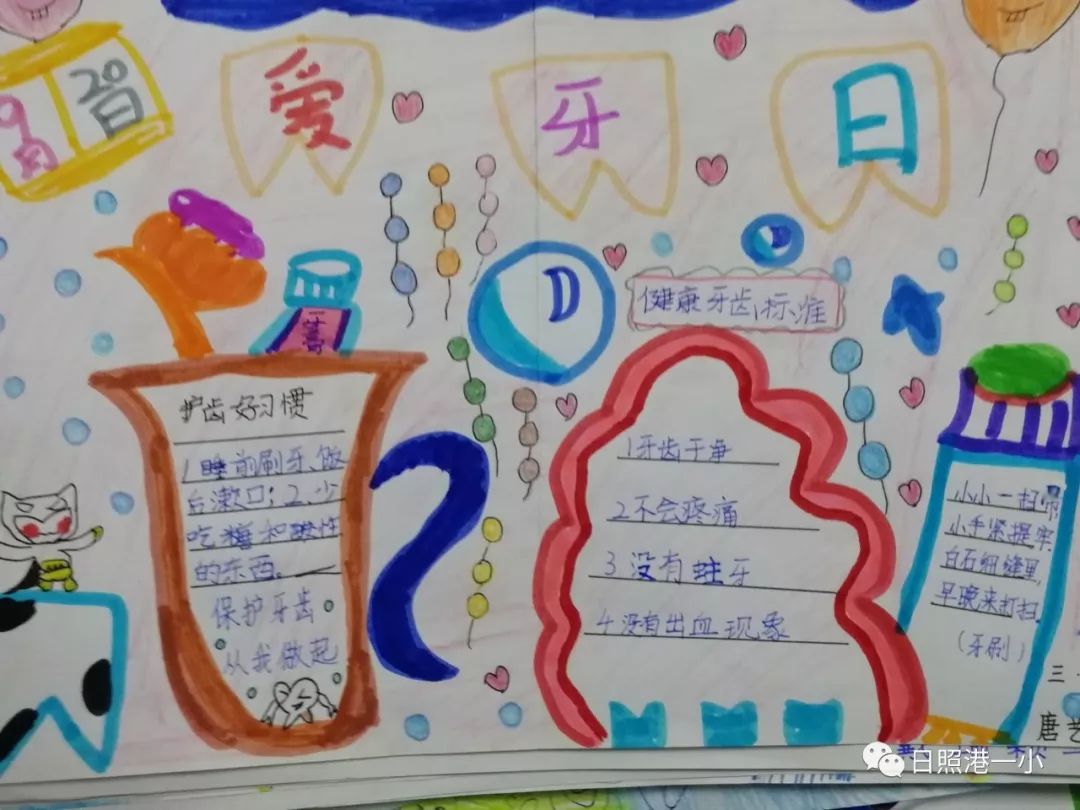 9月
20日
爱牙日
护齿好习惯
1睡前刷牙、饭
后漱口;2.少
吃糖和酸性
的东西。
保护牙齿
从我做起
健康牙齿标准
1牙齿干净
2不会疼痛
3没有蛀牙
4没有出血现象
小小一扫帚
小手紧握牢
白石细缝里
早晚来打扫.
(牙刷)
三
唐艺
日照港一小